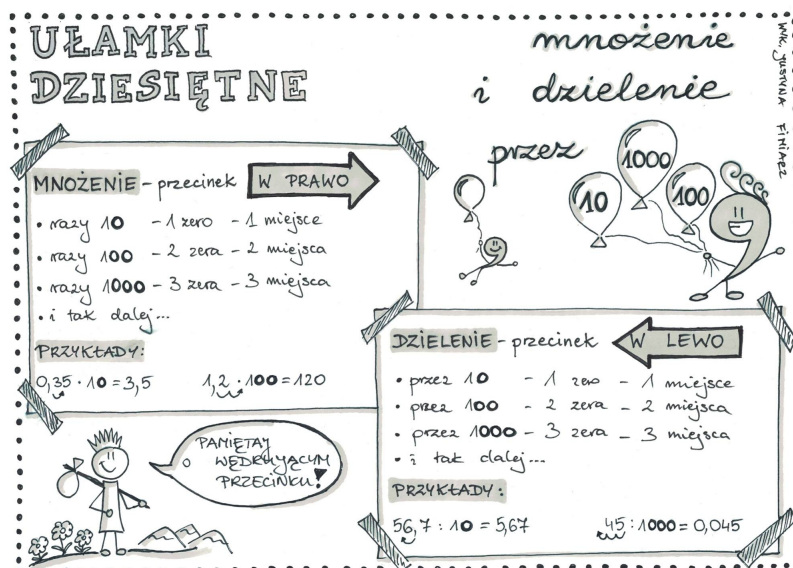 UŁAMKI
DZIESIĘTNE
mnożenie
i dzielenie
przez
10
1000
100
WYK. JUSTYNA FINIARZ
MNOŻENIE - przecinek W PRAWO
• razy 10 - 1 zero - 1 miejsce
• razy 100 - 2 zera - 2 miejsca
• razy 1000 - 3 zera - 3 miejsca
• i tak dalej...
PRZYKŁADY:
0,35 · 10 = 3,5 1,2 · 100 = 120
PAMIĘTAJ
O WĘDRUJĄCYM
PRZECINKU!
DZIELENIE - przecinek W LEWO
• przez 10 - 1 zero - 1 miejsce
• przez 100 - 2 zera - 2 miejsca
• przez 1000 - 3 zera - 3 miejsca
• i tak dalej...
PRZYKŁADY:
56,7 : 10 = 5,67 45 : 1000 = 0,045